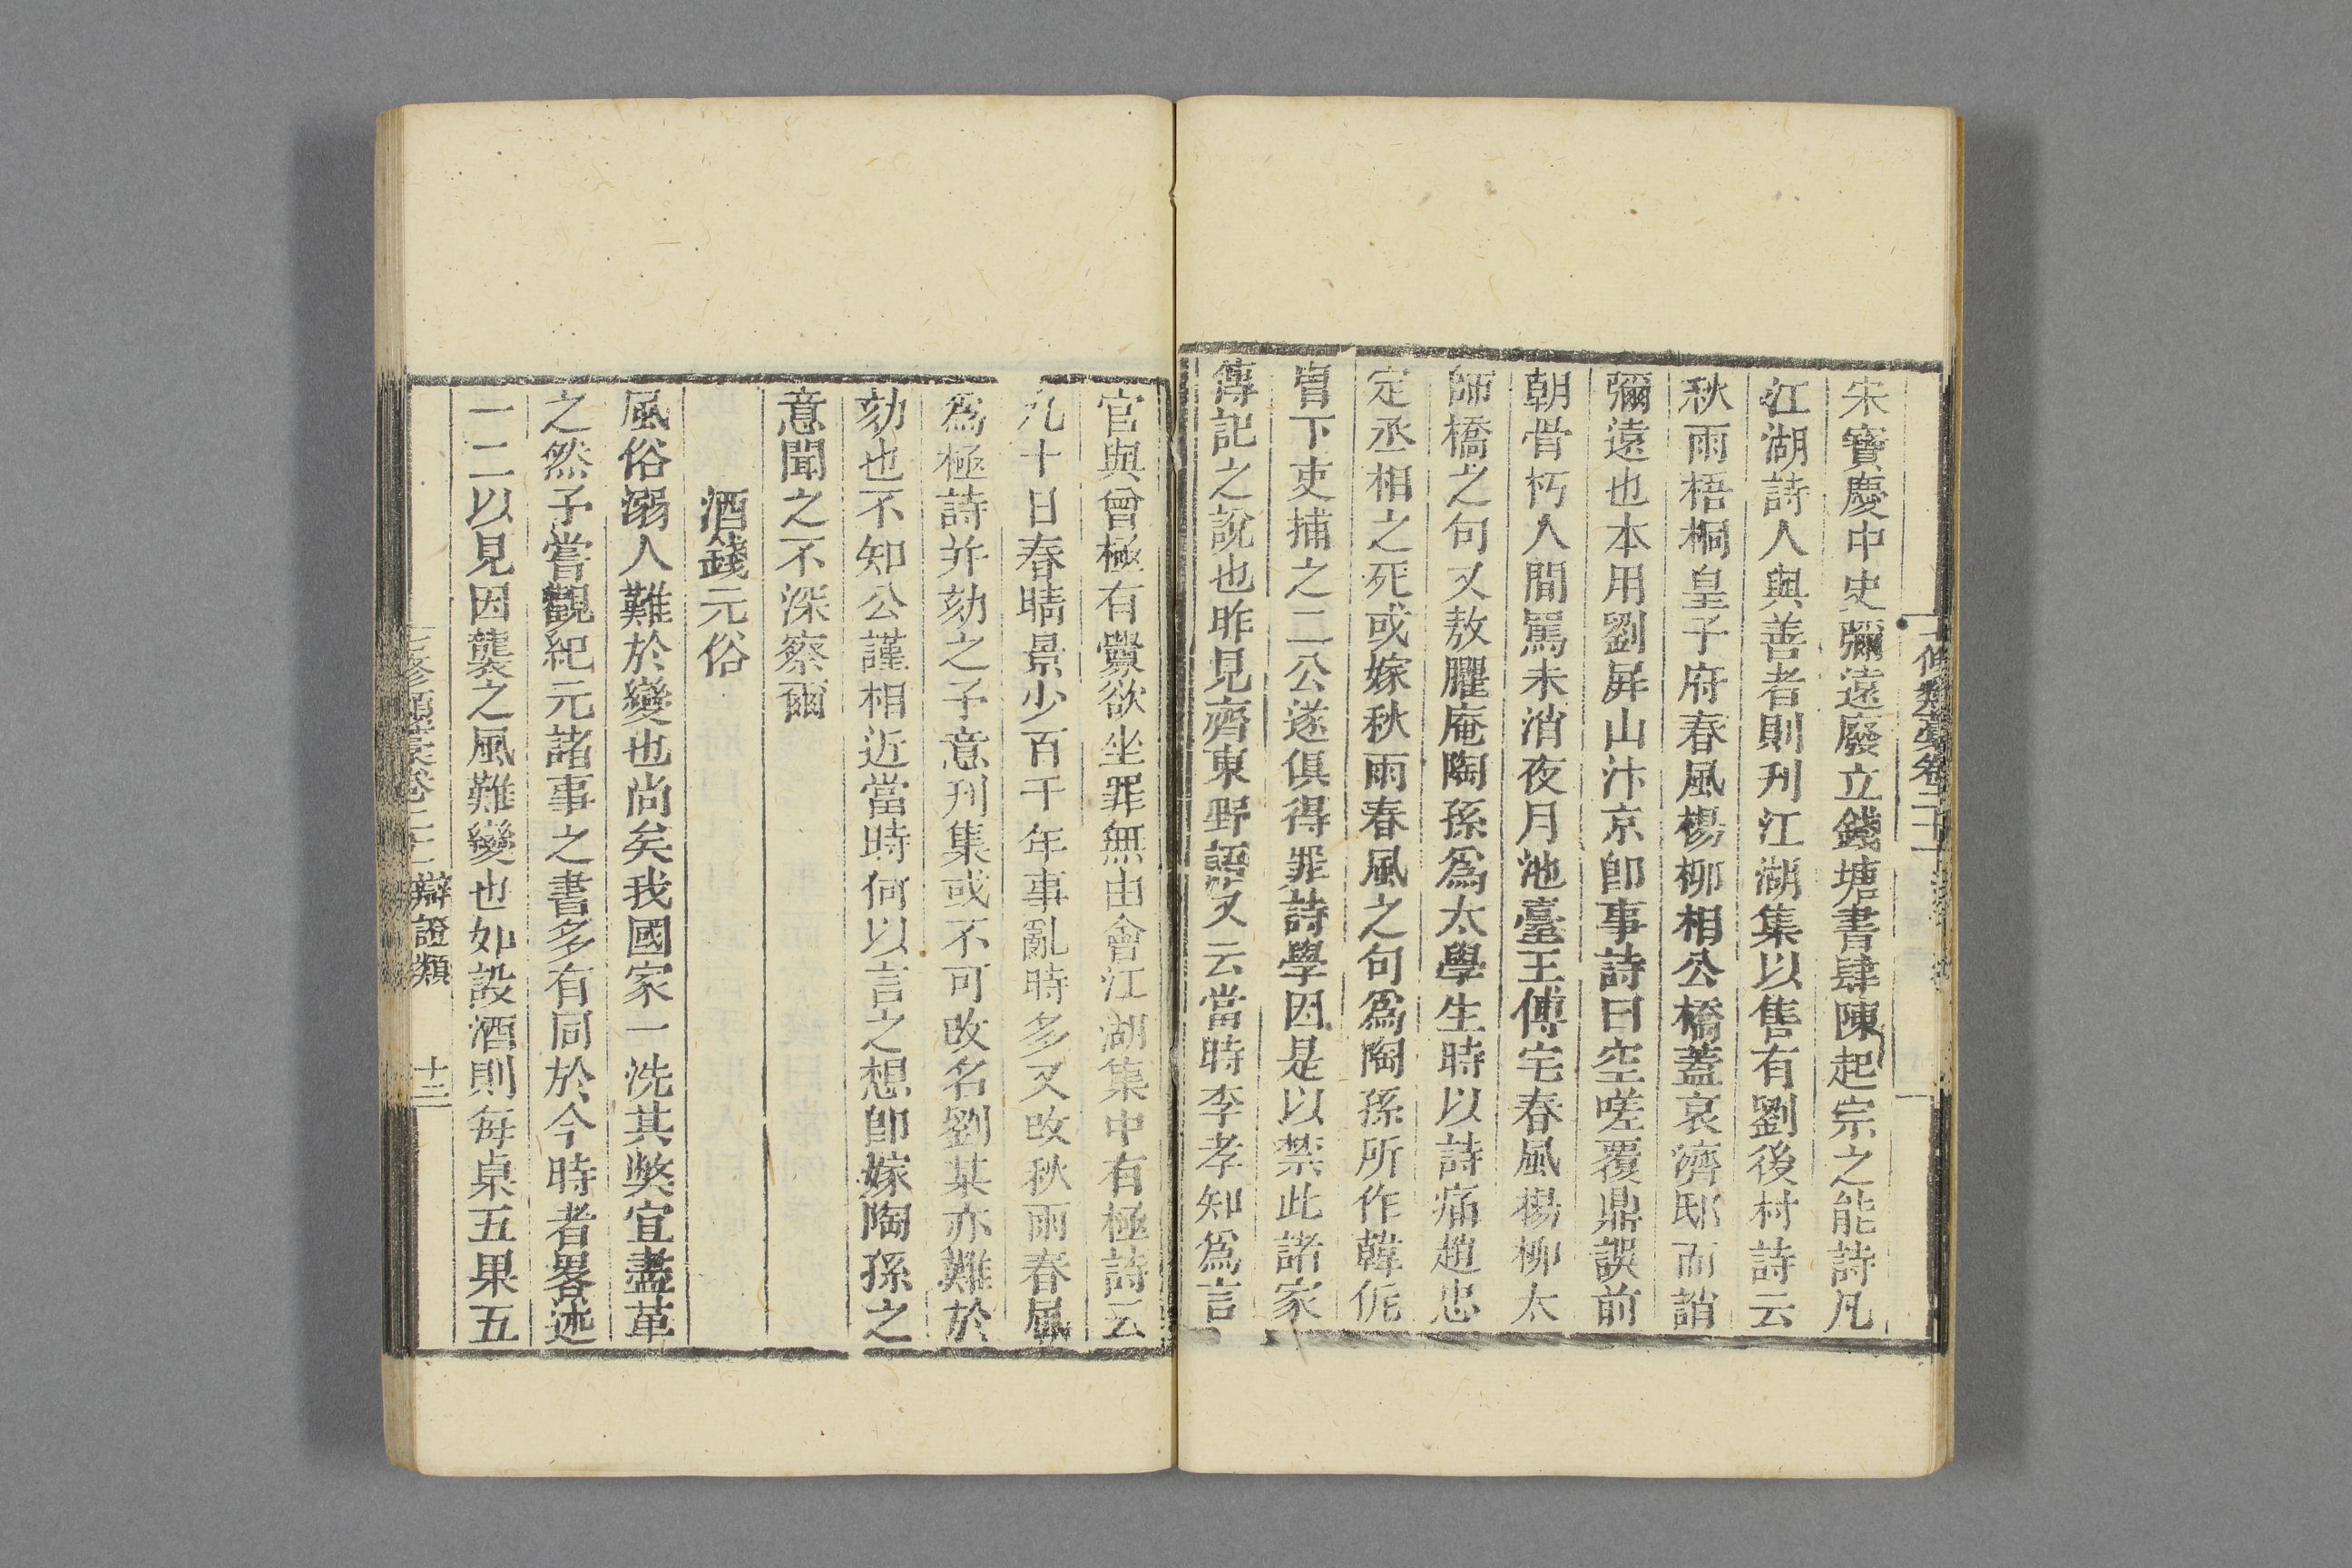 宋寶慶中史彌遠廢立錢塘書肆陳起宗之能詩凡
江湖詩人與善者則刋江湖集以售有劉後村詩云
秋雨梧桐皇子府春風楊柳相公橋蓋哀濟邸而誚
彌遠也本用劉屛山汴京卽事詩曰空嗟覆鼎誤前
朝骨朽人間駡未消夜月池臺王傅宅春風楊柳太
師橋之句又敖臞庵陶孫爲太學生時以詩痛趙忠
定丞相之死或嫁秋雨春風之句爲陶孫所作韓侂
冑下吏捕之二公遂俱得罪詩學因是以禁此諸家
傳記之說也昨見齊東野語又云當時李孝知爲言
官與曾極有釁欲坐罪無由會江湖集中有極詩云
九十日春晴景少百千年事亂時多又改秋雨春風
爲極詩并劾之予意刋集或不可改名劉某亦難於
劾也不知公謹相近當時何以言之想卽嫁陶孫之
意聞之不深察爾
酒錢元俗
風俗溺人難於變也尚矣我國家一洗其獘宜盡革
之然予嘗觀紀元諸事之書多有同於今時者畧述
一二以見因襲之風難變也如設酒則每桌五果五
七修類藁卷二十 辯證類 十三